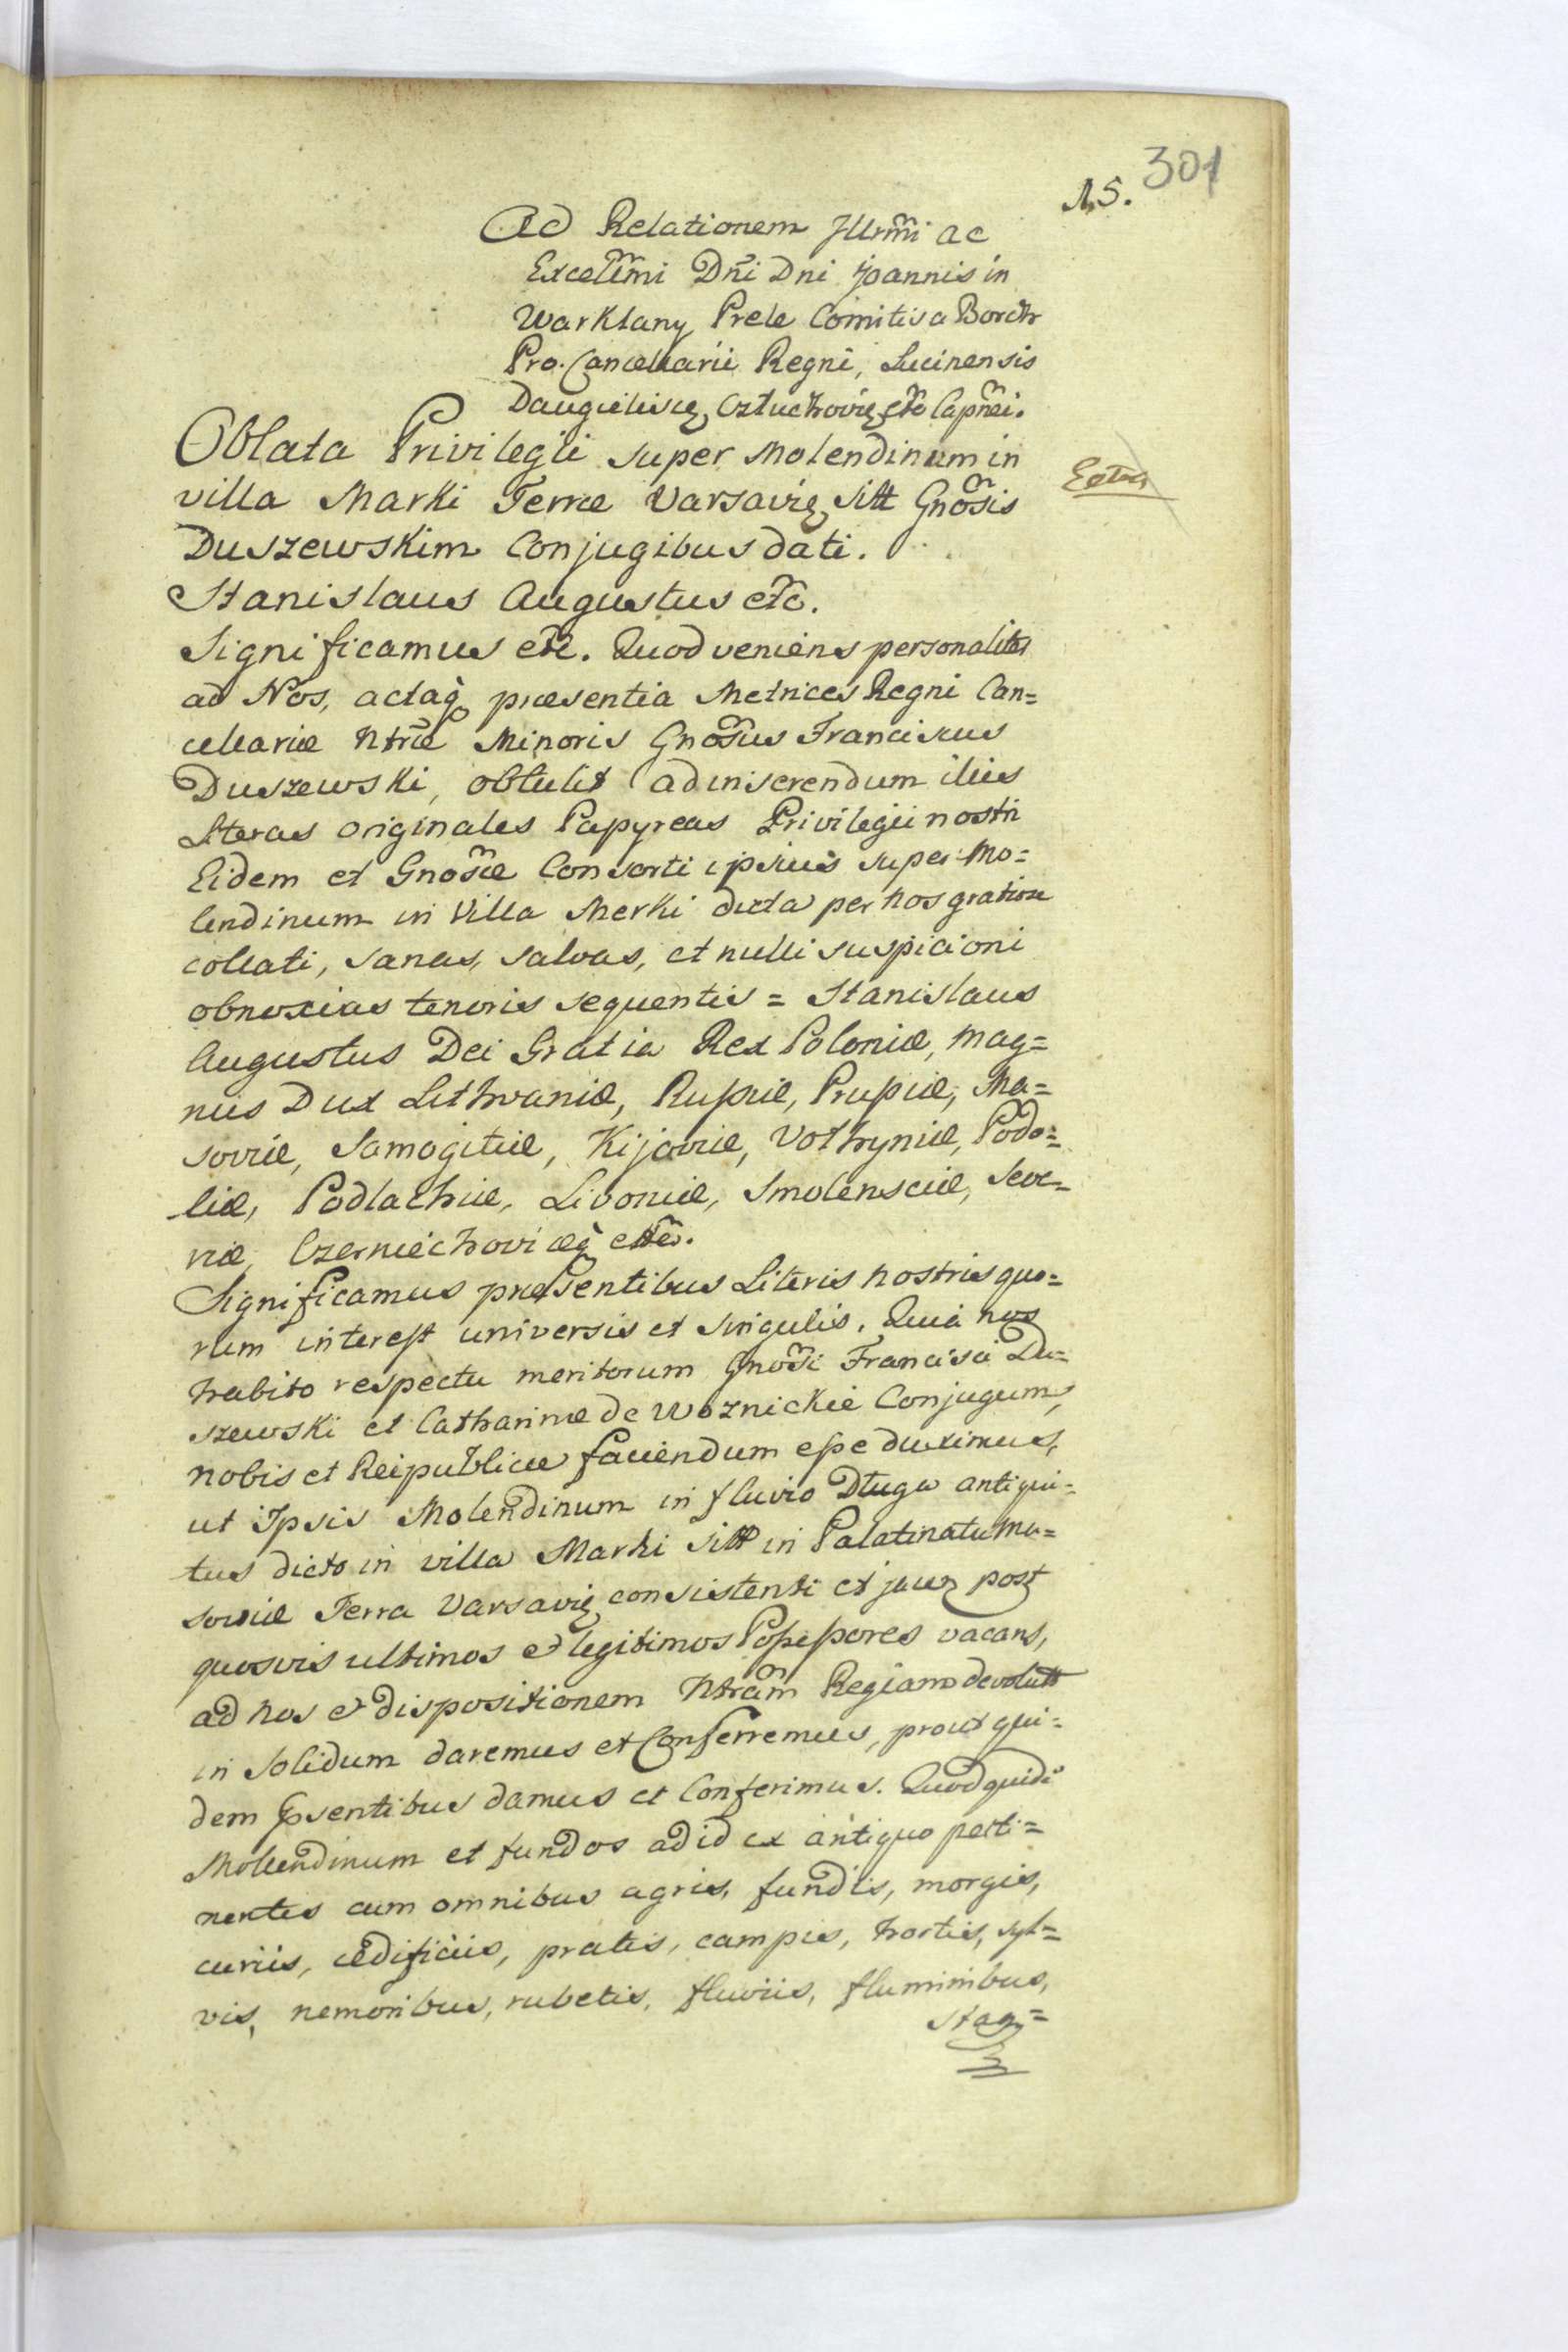 301
15.
Ad Relationem Jllrmi ac
Excellmi Dni Dni Joannis in
Warklany Prele Comitis a Borch
Pro. Cancellarii Regni, Lucinensis
Daugielisię, Cztuchovię etc Capnei.
Oblata Privilegii super Molendinum in
villa Marki Terræ Varsavię sitt Gnosis
Duszewskim Conjugibus dati.
Stanislaus Augustus etc.
Significamus etc. Quod veniens personaliter
ad Nos, actaq præsentia Metrices Regni Can=
cellariæ Ntræ Minoris Gnosus Franciscus
Duszewski, obtulit ad inserendum illis
Literas originales Papyreas Privilegii nostri
Eidem et Gnosæ Consorti ipsius super Mo=
lendinum in Villa Merki dicta per nos gratiose
collati, sanas, salvas, et nulli suspicioni
obnoxias tenoris sequentis = Stanislaus
Augustus Dei Gratia Rex Poloniæ, Mag=
nus Dux Lithvaniæ, Rußiæ, Prußiæ, Ma=
soviæ, Samogitiæ, Kijoviæ, Volhyniæ, Podo=
liæ, Podlachiæ, Livoniæ, Smolensciæ, Seve=
riæ, Czerniechoviæq etc.
Significamus præsentibus Literis nostris quo=
rum interest universis et singulis. Quia nos
habito respectu meritorum Gnosi Francisci Du=
szewski et Catharinæ de Woznickie Conjugum,
nobis et Reipublicæ faciendum eße duximus,
ut Ipsis Molendinum in fluvio Długa antiqui=
tus dicto in villa Marki sitt in Palatinatu Ma=
soviæ Terra Varsavię consistenti et jacen post
quosvis ultimos et legitimos Poßeßores vacans,
ad nos et dispositionem Ntram Regiam devolutt
in solidum daremus et Conferremus, prout qui=
dem psentibus damus et Conferimus. Quod quide
Mollendinum et fundos ad id ex antiquo perti=
nentes cum omnibus agris, fundis, morgis,
curiis, ædificiis, pratis, campis, hortis, syl=
vis, nemoribus, rubetis, fluviis, fluminibus,
stag=